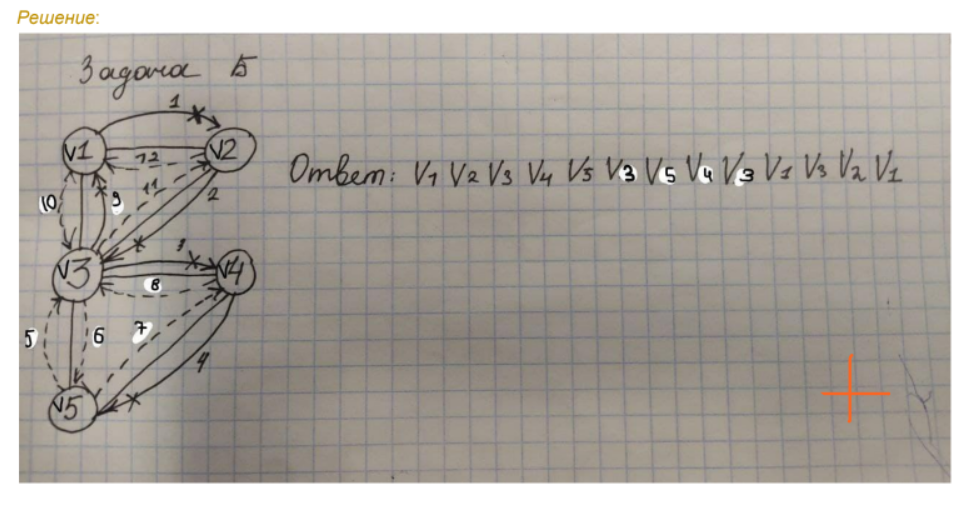 Решение:
Задача 5
1
V1
12
V2
10
9
11
2
V3
3
V4
8
5
6
7
4
V5
Ответ: V1 V2 V3 V4 V5 V3 V5 V4 V3 V1 V3 V2 V1